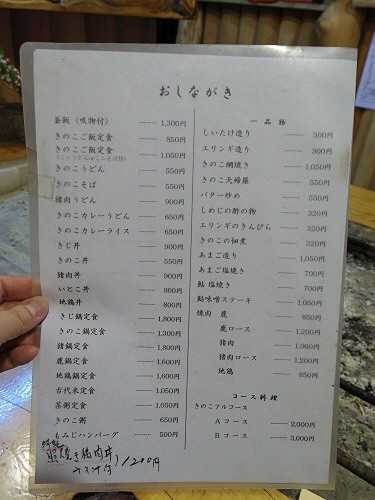 おしながき
釜飯（吸物付） 1,300円
きのこご飯定食 850円
きのこご飯定食 1,050円
きのこうどん 550円
きのこそば 550円
猪肉うどん 900円
きのこカレーうどん 650円
きのこカレーライス 650円
きじ丼 900円
きのこ丼 550円
猪肉丼 900円
いとこ丼 800円
地鶏丼 800円
きじ鍋定食 1,800円
きのこ鍋定食 1,300円
猪鍋定食 1,800円
鹿鍋定食 1,600円
地鶏鍋定食 1,600円
古代米定食 1,050円
茶粥定食 1,050円
きのこ粥 650円
もみじハンバーグ 500円
照焼き猪肉丼 1200円
みそ汁付
一品物
しいたけ造り 300円
エリンギ造り 300円
きのこ網焼き 1,050円
きのこ天婦羅 550円
バター炒め 550円
しめじの酢の物 320円
エリンギのきんぴら 320円
きのこの佃煮 320円
あまご造り 1,050円
あまご塩焼き 700円
鮎 塩焼き 700円
鮎味噌ステーキ 1,050円
焼肉 鹿 850円
鹿ロース 1,200円
猪肉 1,060円
猪肉ロース 1,200円
地鶏 850円
コース料理
きのこフルコース
Aコース 2,000円
Bコース 3,000円